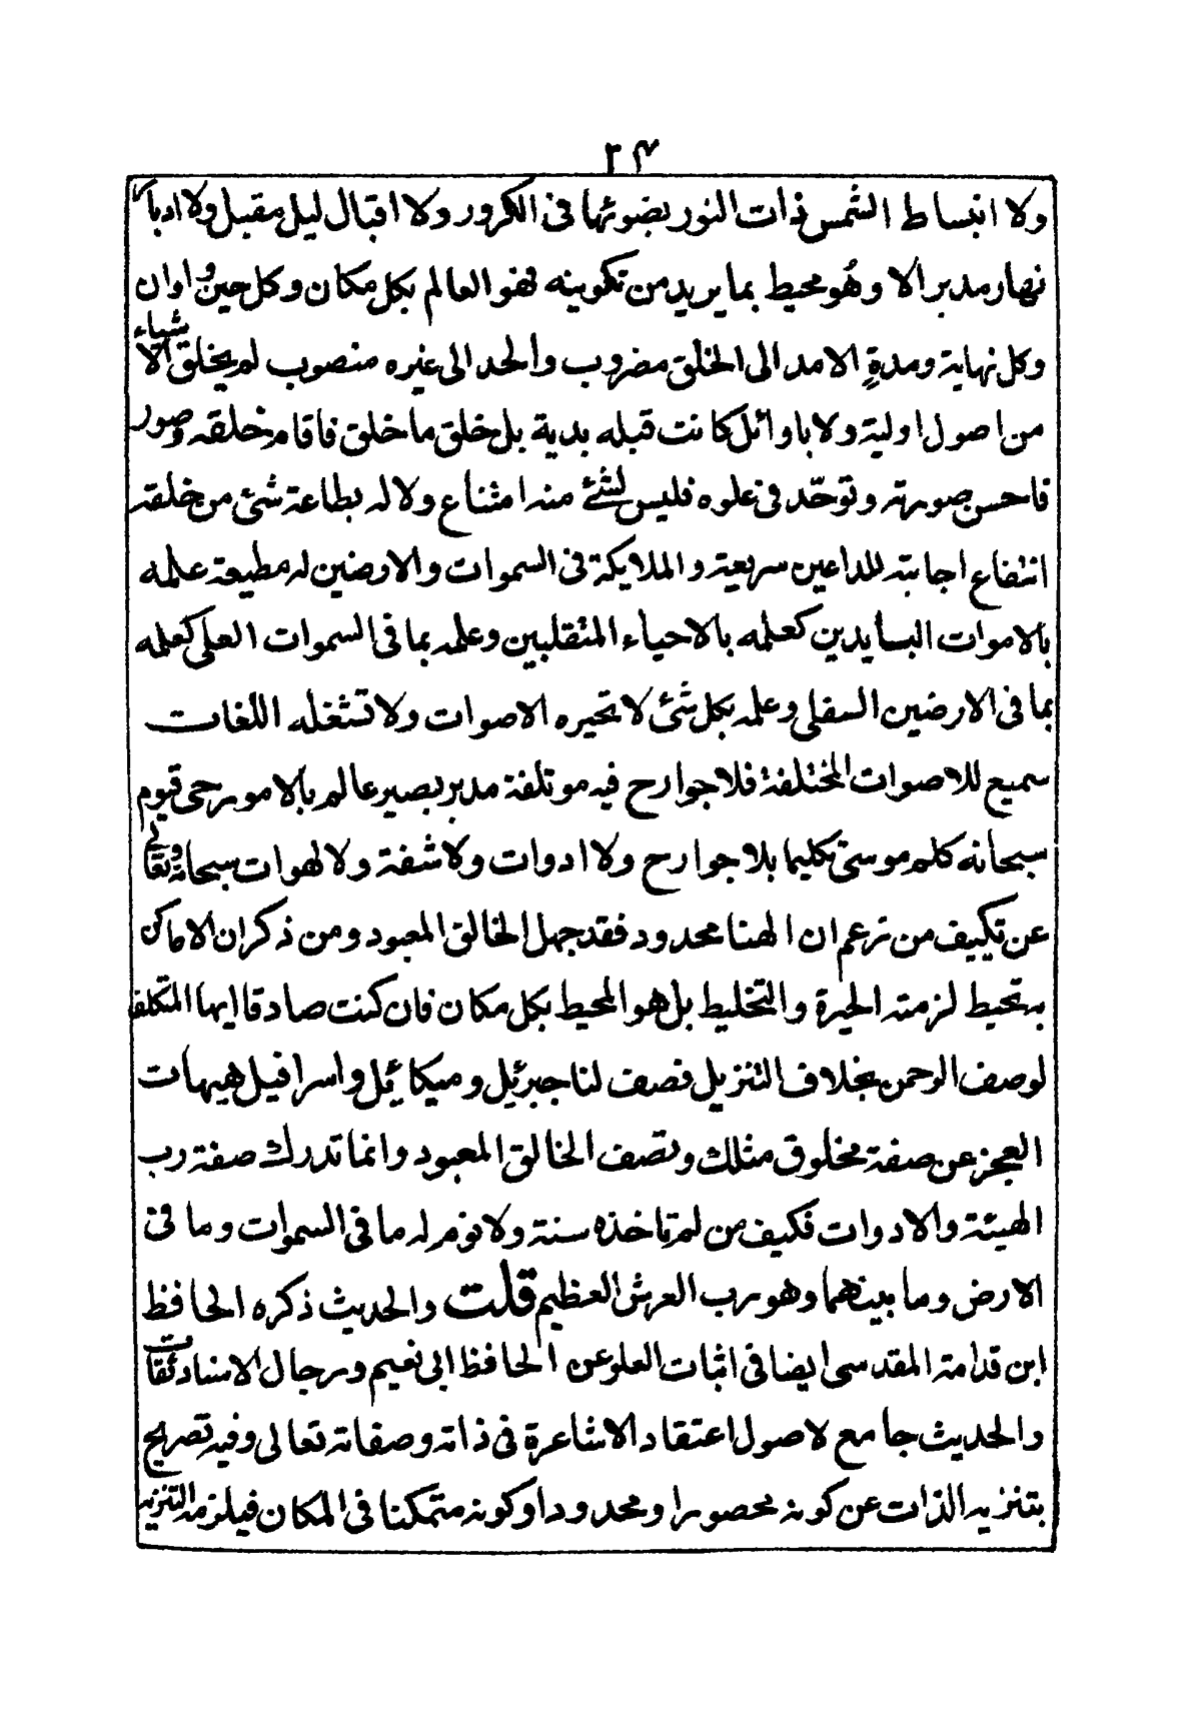 ٢٤
ولا انبساط الشمس ذات النور بضوئها فى الكرور ولا اقبال ليل مقبل ولا ادبار
نهار مدبر الا وهُو محيط بما يريد من تكوينه فهو العالم بكل مكان وكل حين واوان
وكل نهاية ومدةٍ الامد الى الخلق مضروب والحد الى غيره منصوب لم يخلق الاشياء
من اصول اولية ولا باوائل كانت قبله بدية بل خلق ما خلق فاقام خلقه وصور
فاحسن صورته وتوحّد فى علوه فليس لشئ منه امتناع ولا له بطاعة شئ من خلقه
انتفاع اجابته للداعين سريعة والملايكة فى السموات والارضين له مطيعة علمه
بالاموات البايدين كعلمه بالاحياء المتقلبين وعلمه بما فى السموات العلى كعلمه
بما فى الارضين السفلى وعلمه بكل شئ لا تحيره الاصوات ولا تشغله اللغات
سميع للاصوات المختلفة فلا جوارح فيه موتلفة مدبر بصير عالم بالامور حى قيوم
سبحانه كلم موسى تكليما بلا جوارح ولا ادوات ولا شفة ولا لهوات سبحانه وتعالى
عن تكييف من زعم ان الهنا محدود فقد جهل الخالق المعبود ومن ذكر ان الاماكن
به تحيط لزمته الحيرة والتخليط بل هو المحيط بكل مكان فان كنت صادقا ايها المتكلف
لوصف الرحمن بخلاف التنزيل فصف لنا جبرئيل وميكائيل واسرافيل هيهات
العجز عن صفة مخلوق مثلك وتصف الخالق المعبود وانما تدرك صفة رب
الهيئة والادوات فكيف من لم تاخذه سنة ولا نوم له ما فى السموات وما فى
الارض وما بينهما وهو رب العرش العظيم قلت والحديث ذكره الحافظ
ابن قدامة المقدسى ايضا فى اثبات العلو عن الحافظ ابى نعيم ورجال الاسناد ثقات
والحديث جامع لاصول اعتقاد الاشاعرة فى ذاته وصفاته تعالى وفيه تصريح
بتنزيه الذات عن كونه محصورا ومحدودا وكونه متمكنا فى المكان فيلزمه التنزيه